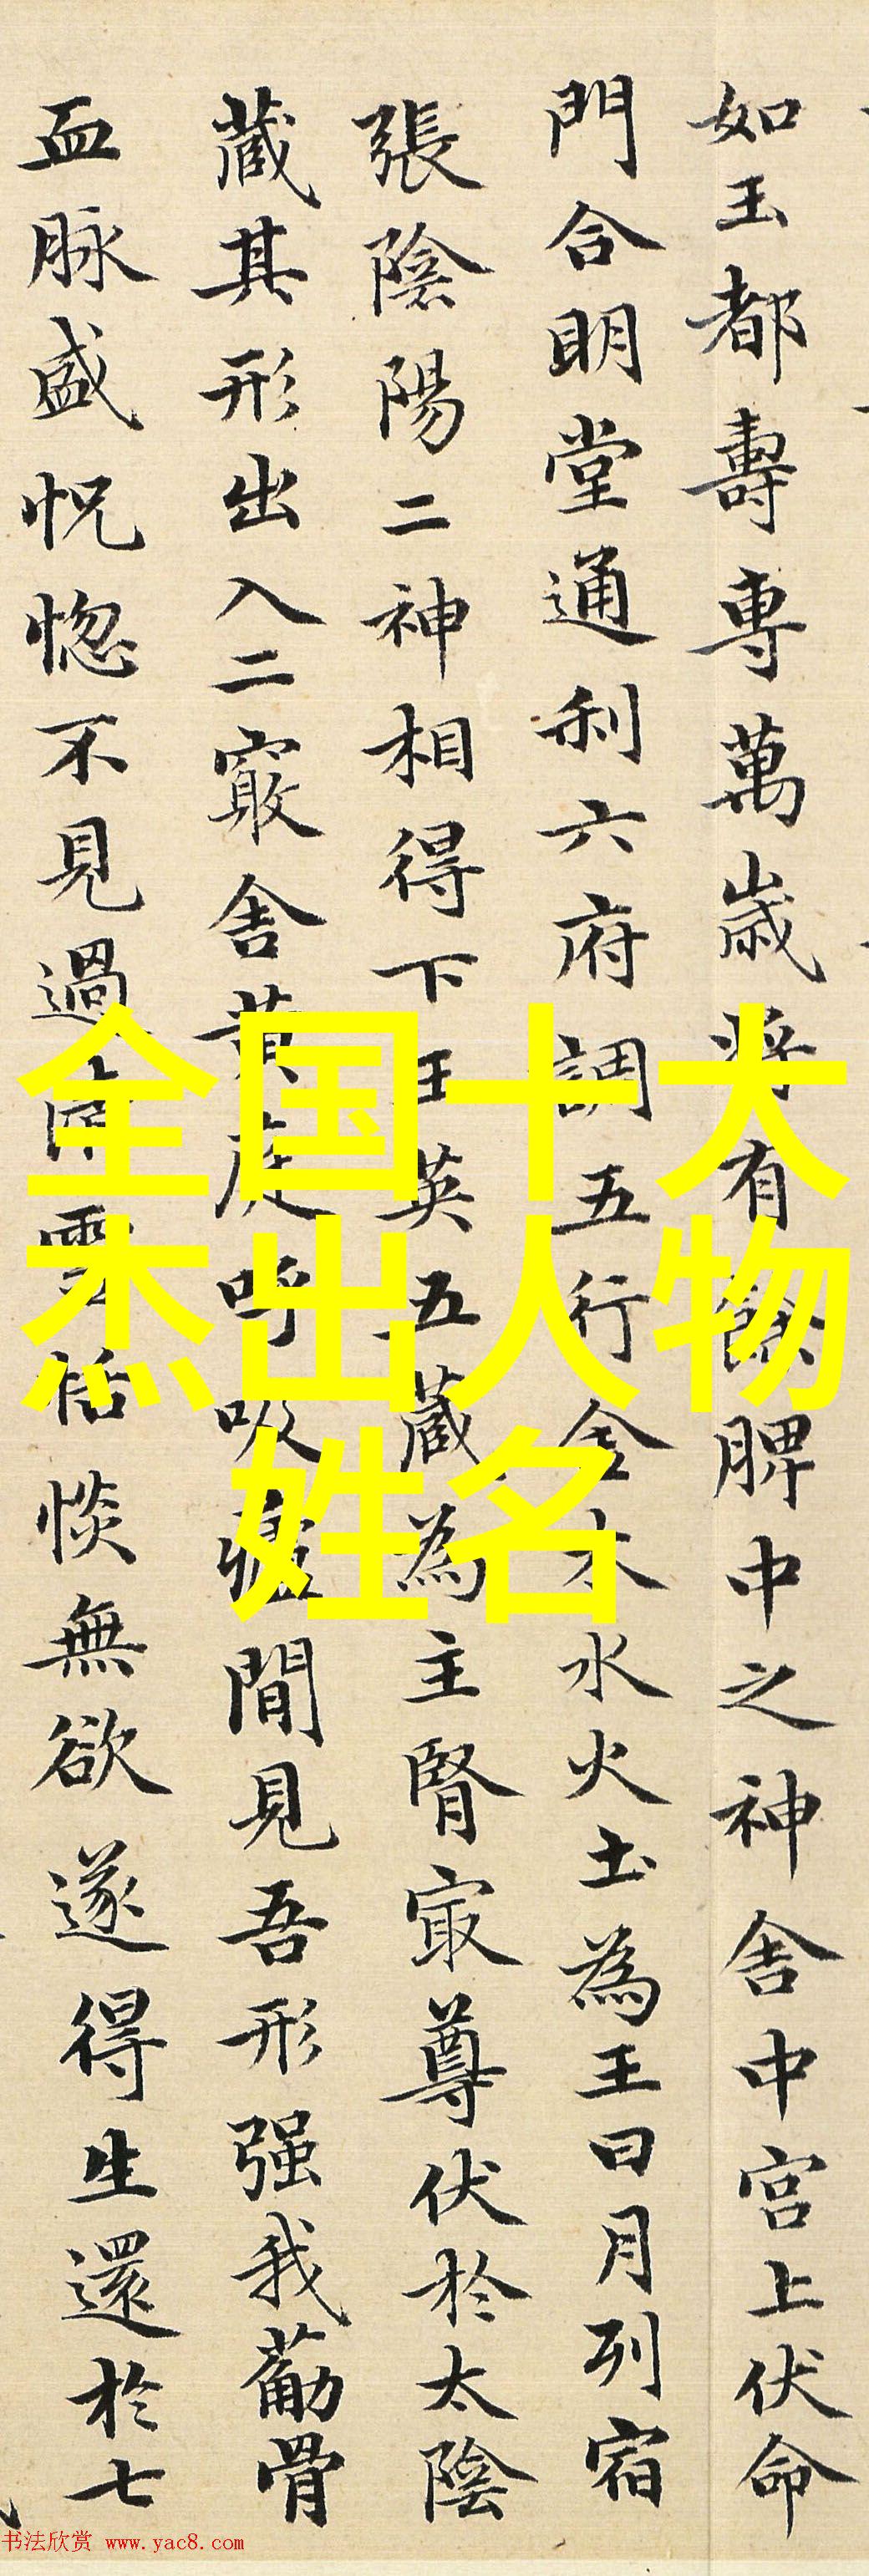 如玉都壽專萬歲將有餘脾中之神舍中宮上伏命
門合明堂通利六府調五行金木水火土為王日月列宿
張陰陽二神相得下玉英五藏為主腎冣尊伏於太陰
藏其形出入二竅舍黃庭呼吸虛間見吾形强我筋骨
血脉盛怳惚不見過清靈恬惔無欲遂得生還於七
全国十大
杰出人物
姓名
书法欣赏 www.yac8.com